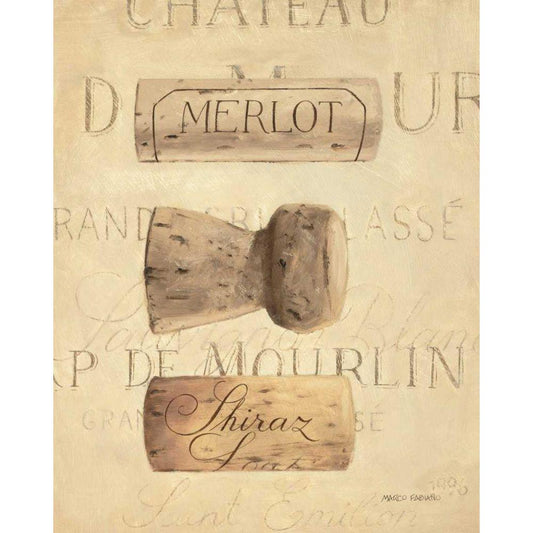 CHATEAU
D M UR
MERLOT
RAND LASSÉ
Sauvignon Blanc
AP DE MOURLIN
GRAN SÉ
Shiraz
1996
MARCO FABIANO
Saint Emilion